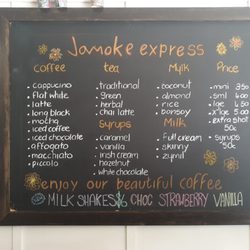 Jamoke express
coffee
• cappucino
• flat white
• latte
• long black
• mocha
• iced coffee
• iced chocolate
• affogato
• macchiato
• piccolo
tea
• traditional
• green
• herbal
• chai latte
syrups
• caramel
• vanilla
• irish cream
• hazelnut
• white chocolate
Mylk
• coconut
• almond
• rice
• bonsoy
Milk
• full cream
• skinny
• zymil
Price
• mini
• sml
• lge
• x lge
• extra shot
• syrups 50c
enjoy our beautiful coffee
MILKSHAKES CHOC STRAWBERRY VANILLA